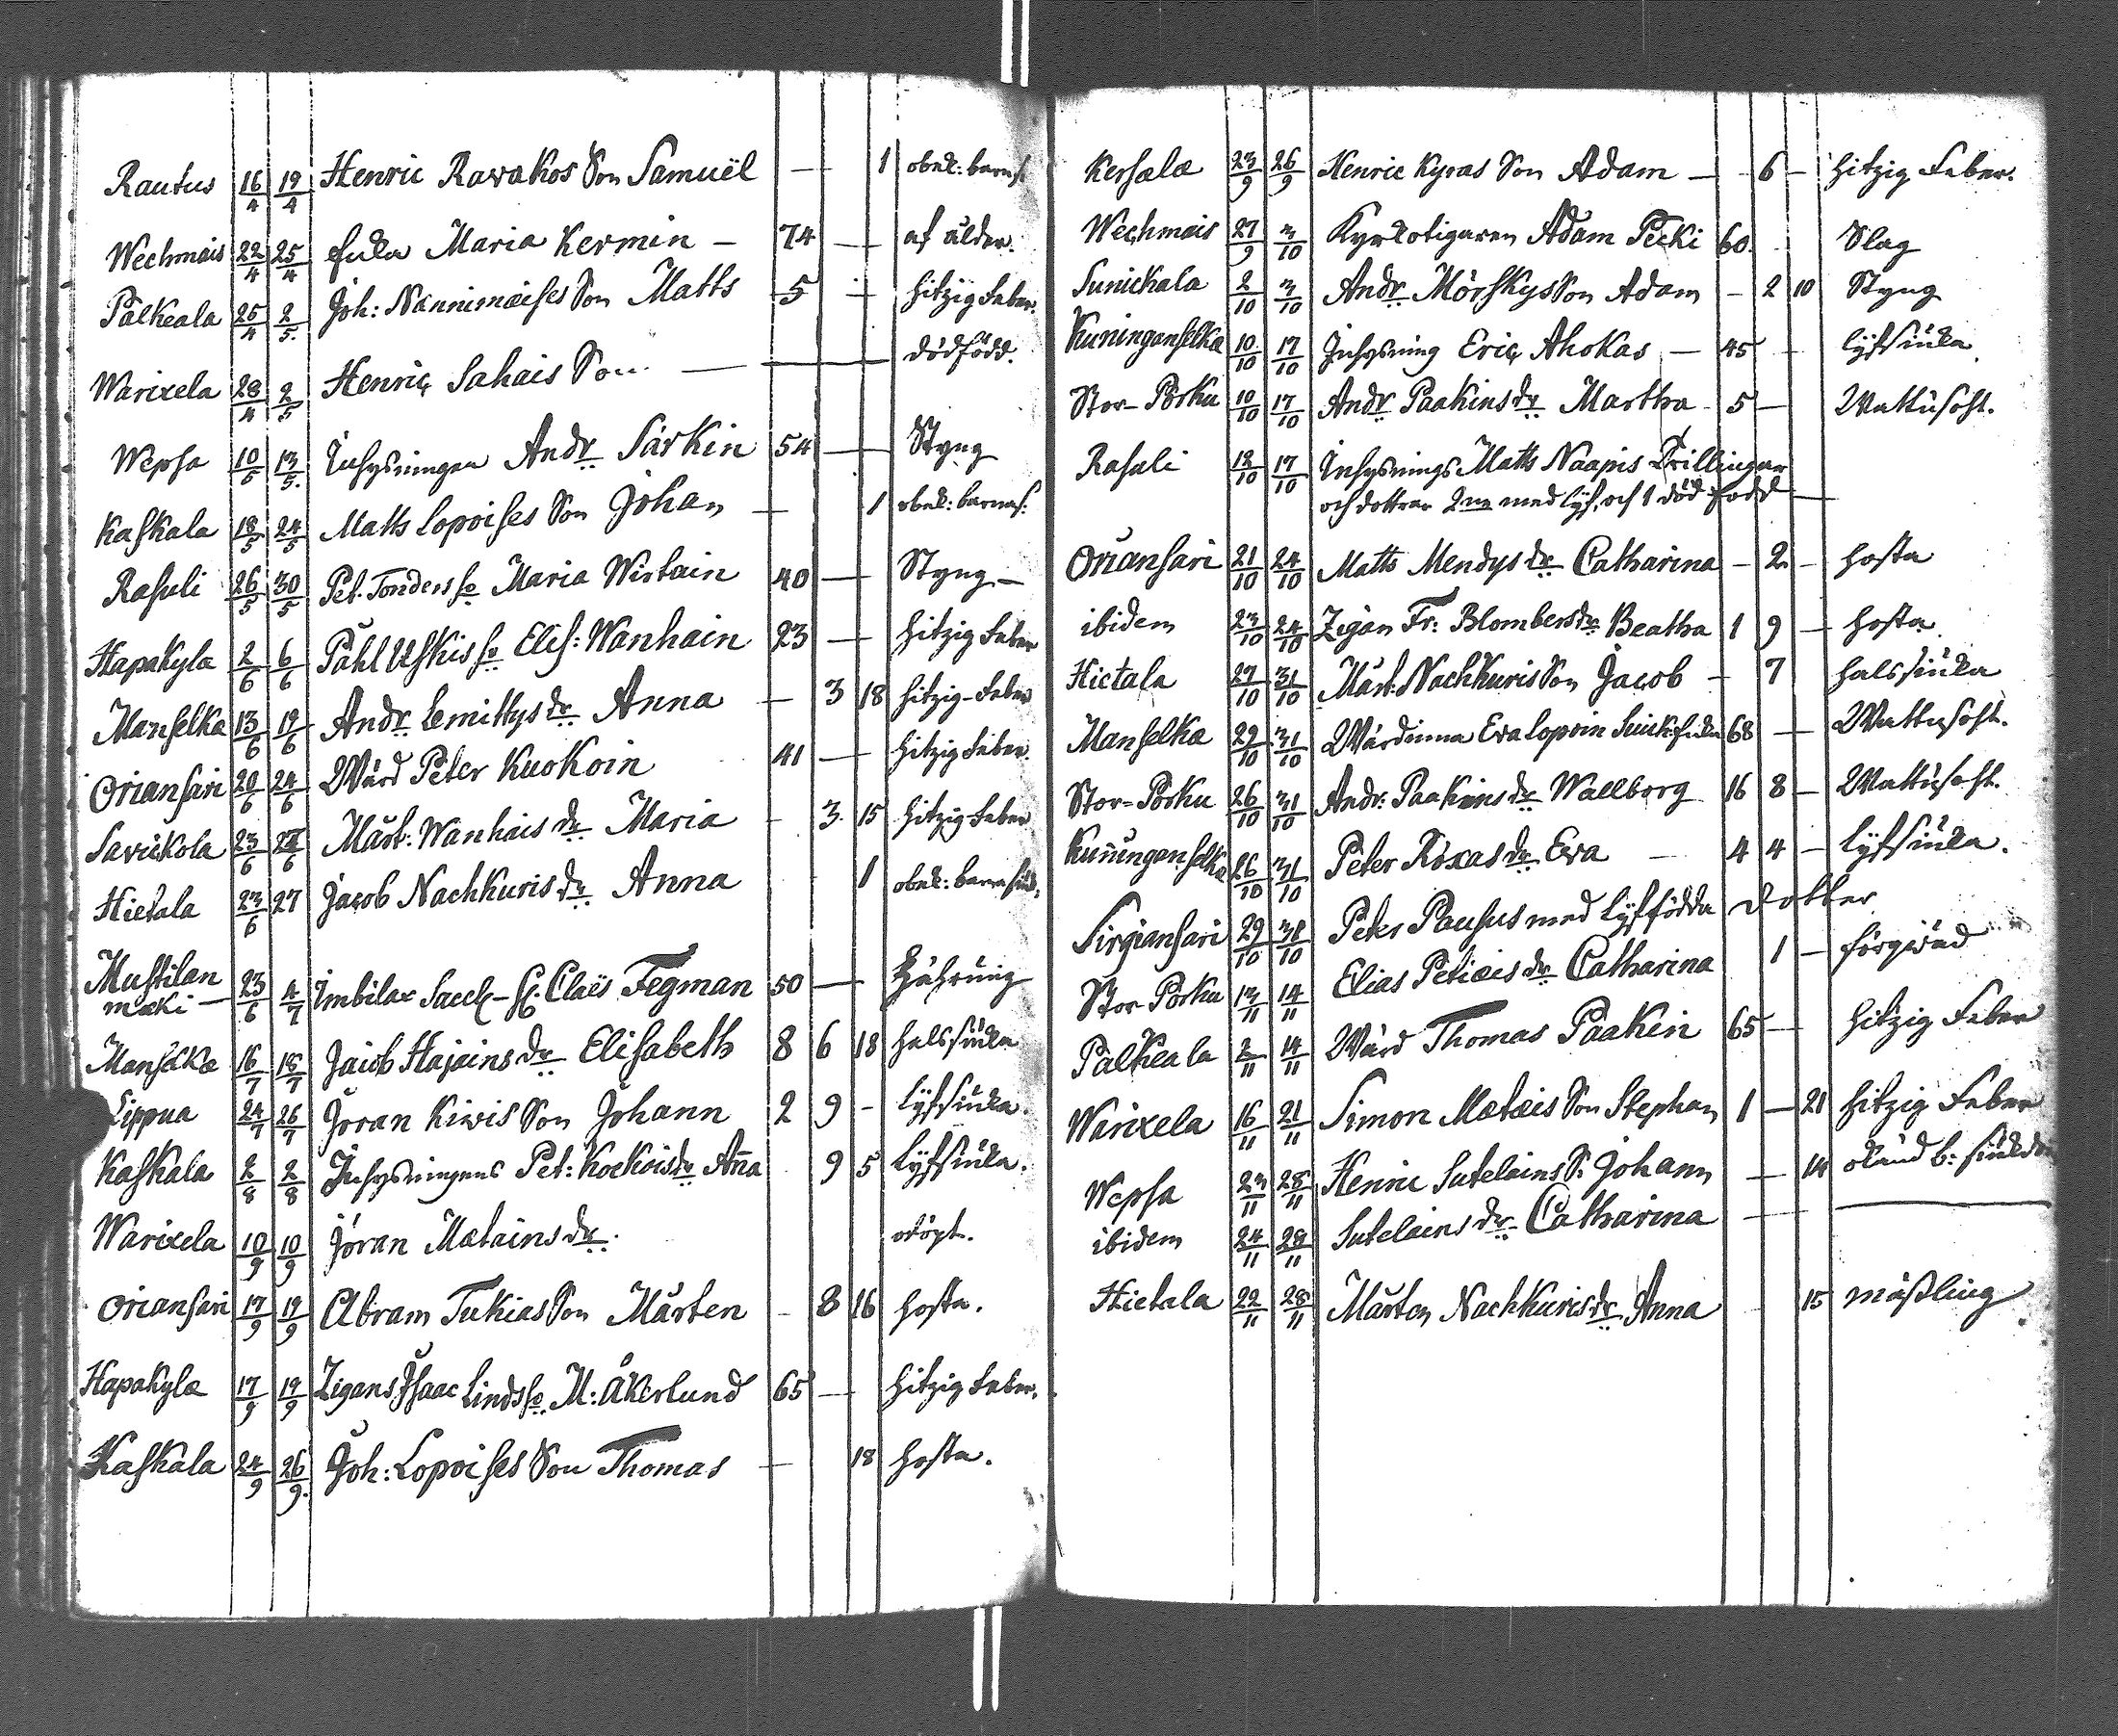 Rautus 16/4 19/4 Henric Rawakos Son Samuël — 1 obek: barnsj
Wechmais 22/4 25/4 Enka Maria Kermin — 74 — af ålder.
Palkeala 25/4 2/5. Joh: Nännimäises Son Matts 5 — hitzig feber.
Warixela 28/4 2/5 Henric Sahais Son — dödfödd.
Wepsa 10/5 13/5. Inhysningen Andr Särkin 54 — Styng
Kaskala 18/5 24/5 Matts Lopoises Son Johan — 1 obek: barnas:
Rasuli 26/5 30/5 Pet. Tonders ho Maria Wirtain 40 — Styng —
Hapakyla 2/6 6/6 Påhl Uskis ho Elis: Wanhain 23 — hitzig feber
Manselka 13/6 19/6 Andr Lemittys dr Anna — 3 18 hitzig-feber
Oriansari 20/6 24/6 Wärd Peter Kuokoin 41 — hitzig feber.
Savikkola 23/6 27/6 Mårt: Wanhais dr Maria — 3 15 hitzig feber
Hietala 23/6 27 Jacob Nachkuris dr Anna 1 obek: barnsiuk:
Mustilan
mæki — 23/6 4/7 Claës Tegman 50 —
Manselkæ 16/7 18/7 Jacob Hajains dr Elisabeth 8 6 18 halssiuka
Lippua 24/7 26/7 Jöran Kiwis Son Johann 2 9 - lyfsiuka.
Kaskala 2/8 2/8 Inhysningens Pet: Kockois dr Anna 9 5 lyfsiuka.
Warixela 10/9 10/9 Jöran Mætains dr. odöpt.
Oriansari 17/9 19/9 Abram Tukias Son Mårten - 8 16 hosta.
Hapakyla 17/9 19/9 Zigans Isaac Linds ho M: Åkerlund 65 — hitzig feber.
Kaskala 24/9 26/9. Joh: Lopoises Son Thomas — 18 hosta.
Kersalæ 23/9 26/9 Henric Kyras Son Adam — 6 — hitzig feber.
Wechmais 27/9 3/10 Kyrkotigaren Adam Pecki 60. Slag
Sunickala 2/10 3/10 Andr Mörskys Son Adam — 2 10 Styng
Kuninganselkæ 10/10 17/10 Inhysning Eric Ahokas — 45 - lyfsiuka
Stor-Pörku 10/10 17/10 Andr Paakins dr Martha - 5 — Wattusoht.
Rasuli 12/10 17/10 Inhysnings Matts Naapis Trillingar
och dottrar 2ne med lyf, och 1 död född —
Oriansari 21/10 24/10 Matts Mendys dr Catharina — 2 — hosta
ibidem 23/10 24/10 Zigan Fr: Blombers dr Beatha 1 9 — hosta
Hietala 27/10 31/10 Mårt: Nachkuris Son Jacob — 7 halssiuka
Manselka 29/10 31/10 Wärdinna Eva Lopoin Enka 68 — Wattusoht.
Stor-Pörku 26/10 31/10 Andr: Paakins dr Wallborg 16 8 — Wattusoht.
Kuninganselkæ 26/10 31/10 Peter Röxas dr Eva — 4 4 — lyfsiuka.
Sirgiansari 29/10 31/10 Peter Pausus med lyf födda dotter
Stor Pörku 13/11 14/11 Elias Petiæis dr Catharina 1 — förgwäd
Palkeala 2/11 14/11 Wärd Thomas Paakin 65 — hitzig feber
Warixela 16/11 21/11 Simon Mætæis Son Stephan 1 — 21 hitzig feber
Wepsa 23/11 28/11 Henric Sutelains S. Johann — 14 okänd b: siukdom
ibidem 24/11 28/11 Sutelains dr Catharina —
Hietala 22/11 28/11 Mårten Nachkuris dr Anna 15 mäßling